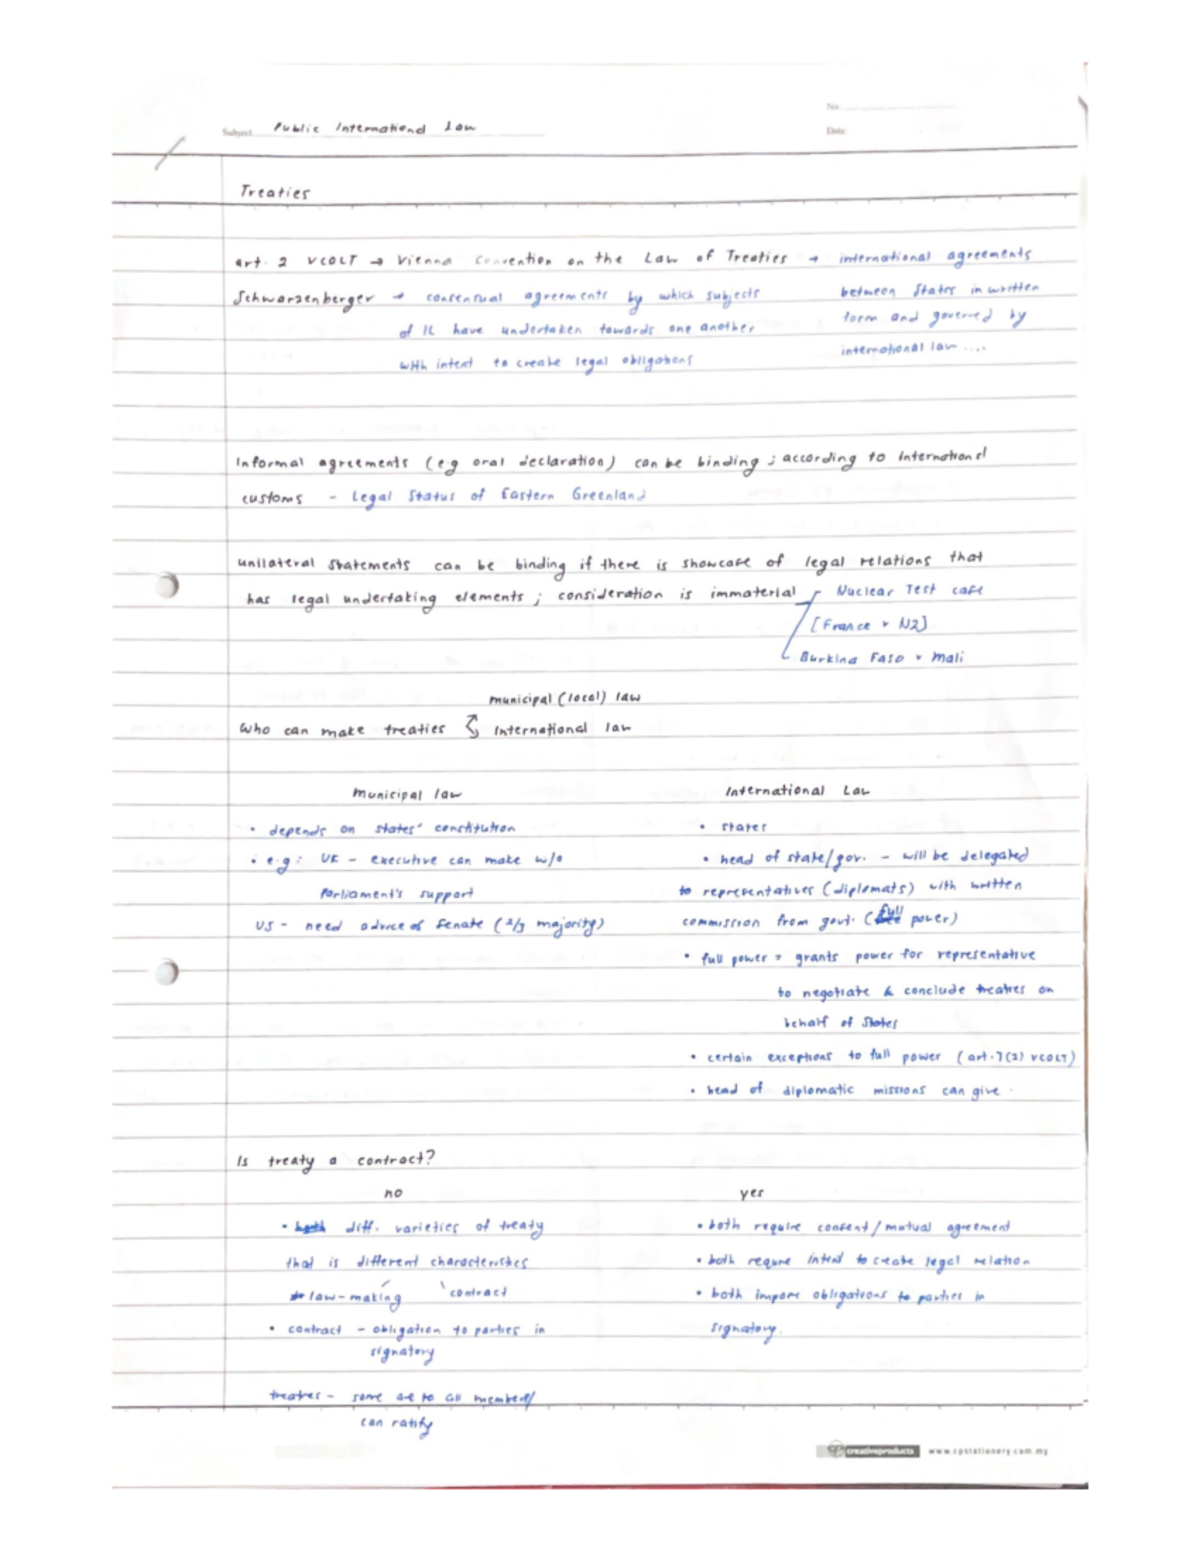 No
Subject Public International Law
Date
Treaties
art. 2 VCOLT → Vienna Convention on the Law of Treaties → international agreements
between States in written
form and governed by
international law ....
Schwarzenberger → consensual agreements by which subjects
of IL have undertaken towards one another
with intent to create legal obligations
Informal agreements (e.g oral declaration) can be binding ; according to international
customs - Legal Status of Eastern Greenland
unilateral statements can be binding if there is showcase of legal relations that
has legal undertaking elements ; consideration is immaterial
Nuclear Test case
[France v NZ]
Burkina Faso v Mali
municipal (local) law
Who can make treaties
International law
municipal law
• depends on states' constitution
• e.g: UK - executive can make w/o
Parliament's support
US - need advice of Senate (2/3 majority)
International Law
• states
• head of state/gov. - will be delegated
to representatives (diplomats) with written
commission from govt. (full power)
• full power = grants power for representative
to negotiate & conclude treaties on
behalf of States
• certain exceptions to full power (art.7(2) VCOLT)
• head of diplomatic missions can give
Is treaty a contract?
no
• both diff. varieties of treaty
that is different characteristics
law-making contract
• contract - obligation to parties in
signatory
treaties - some are to all members/
can ratify
yes
• both require consent/mutual agreement
• both require intent to create legal relation
• both impose obligations to parties in
signatory.
cp creativeproducts www.cpstationery.com.my